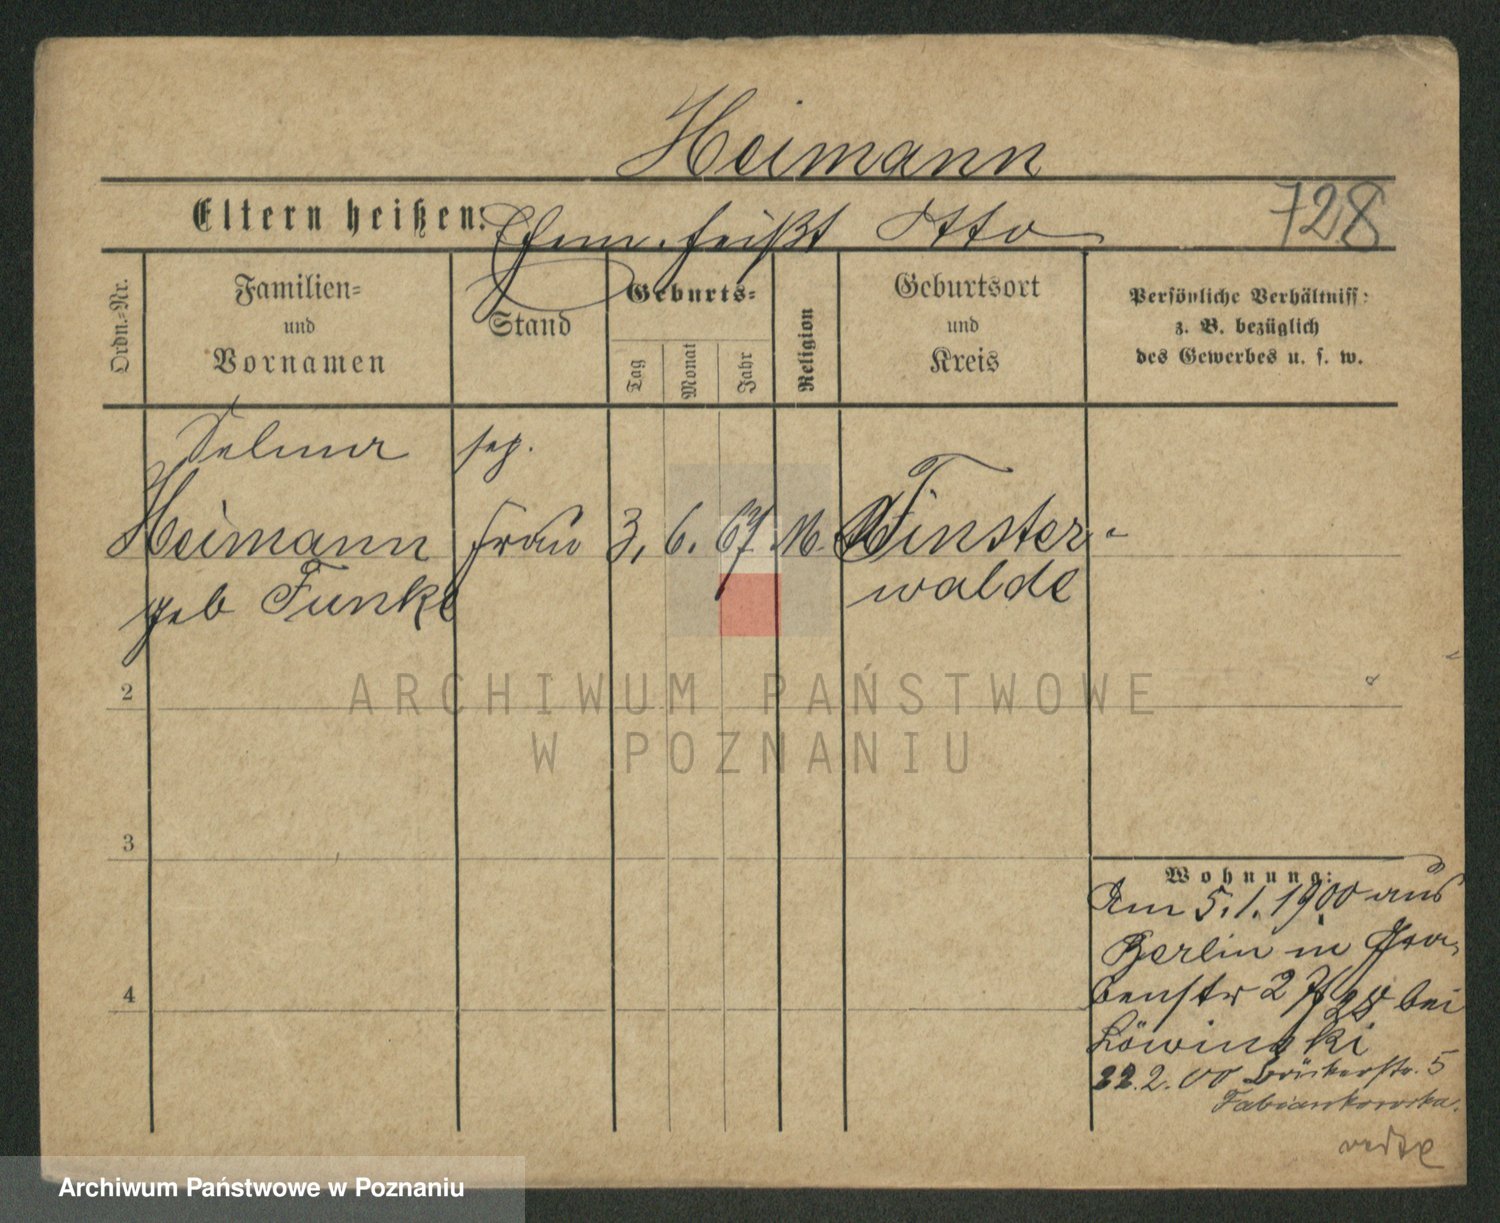 Heimann
Eltern heißen: Ehem. heißt Otto
728
Ordn.-Nr.
Familien-
und
Vornamen
Stand
Geburts-
Tag
Monat
Jahr
Religion
Geburtsort
und
Kreis
Persönliche Verhältniss:
z. B. bezüglich
des Gewerbes u. s. w.
Selma
sep.
Heimann
Frau
3. 6. 67
M.
Finster-
geb Funke
walde
2
3
4
Wohnung:
Am 5.1.1900 aus
Berlin in Gra-
benstr 27 bei
Löwinski
22.2.00 Bäckerstr. 5
Fabiankowska.
ARCHIWUM PAŃSTWOWE
W POZNANIU
Archiwum Państwowe w Poznaniu